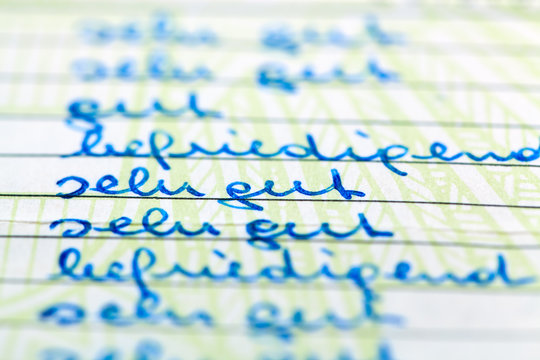 sehr gut
sehr gut
gut
befriedigend
sehr gut
sehr gut
befriedigend
sehr gut